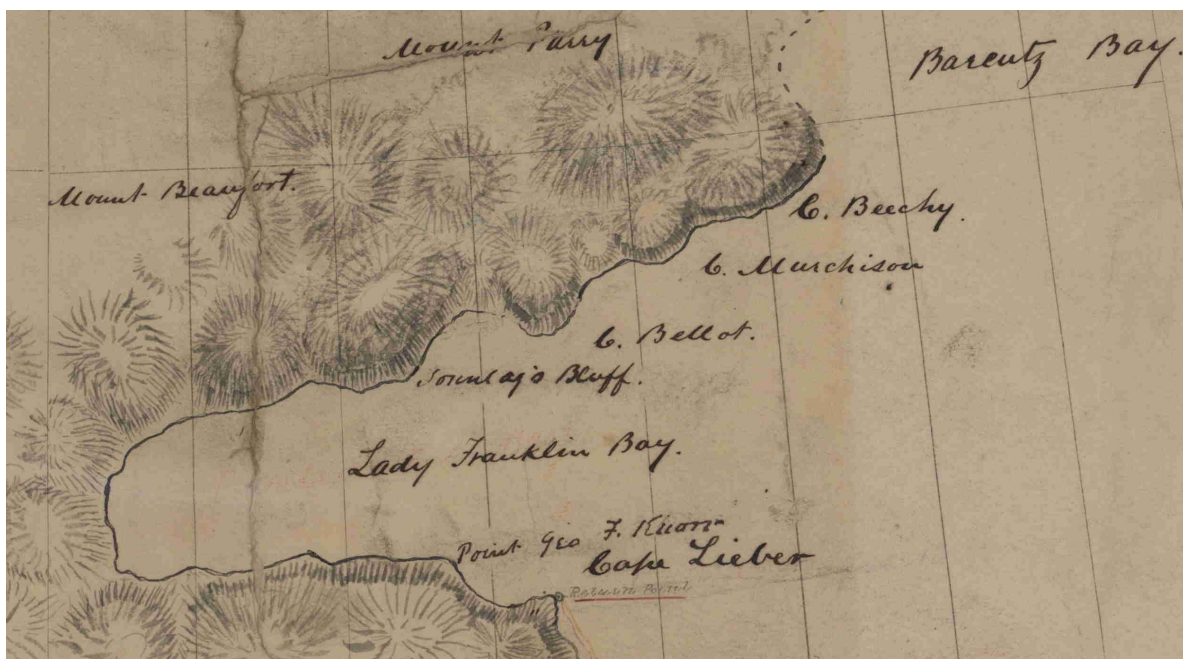 Mount Parry
Barentz Bay.
Mount Beaufort.
C. Beechy.
C. Murchison
C. Bellot.
Bluff.
Lady Franklin Bay.
Point Geo F.
Cape Lieber